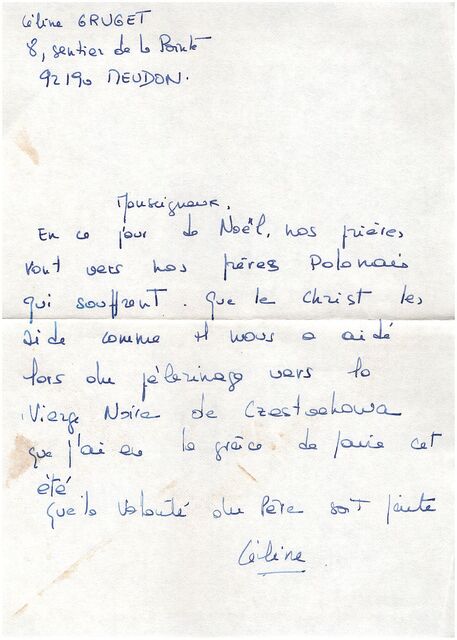 Céline GRUGET
8, sentier de la Pointe
92190 MEUDON.
Monseigneur,
En ce jour de Noël, nos prières
vont vers nos frères Polonais
qui souffrent. Que le Christ les
aide comme il nous a aidé
lors du pèlerinage vers la
Vierge Noire de Czestochowa
que j'ai eu la grâce de faire cet
été
Que la volonté du Père soit faite
Céline